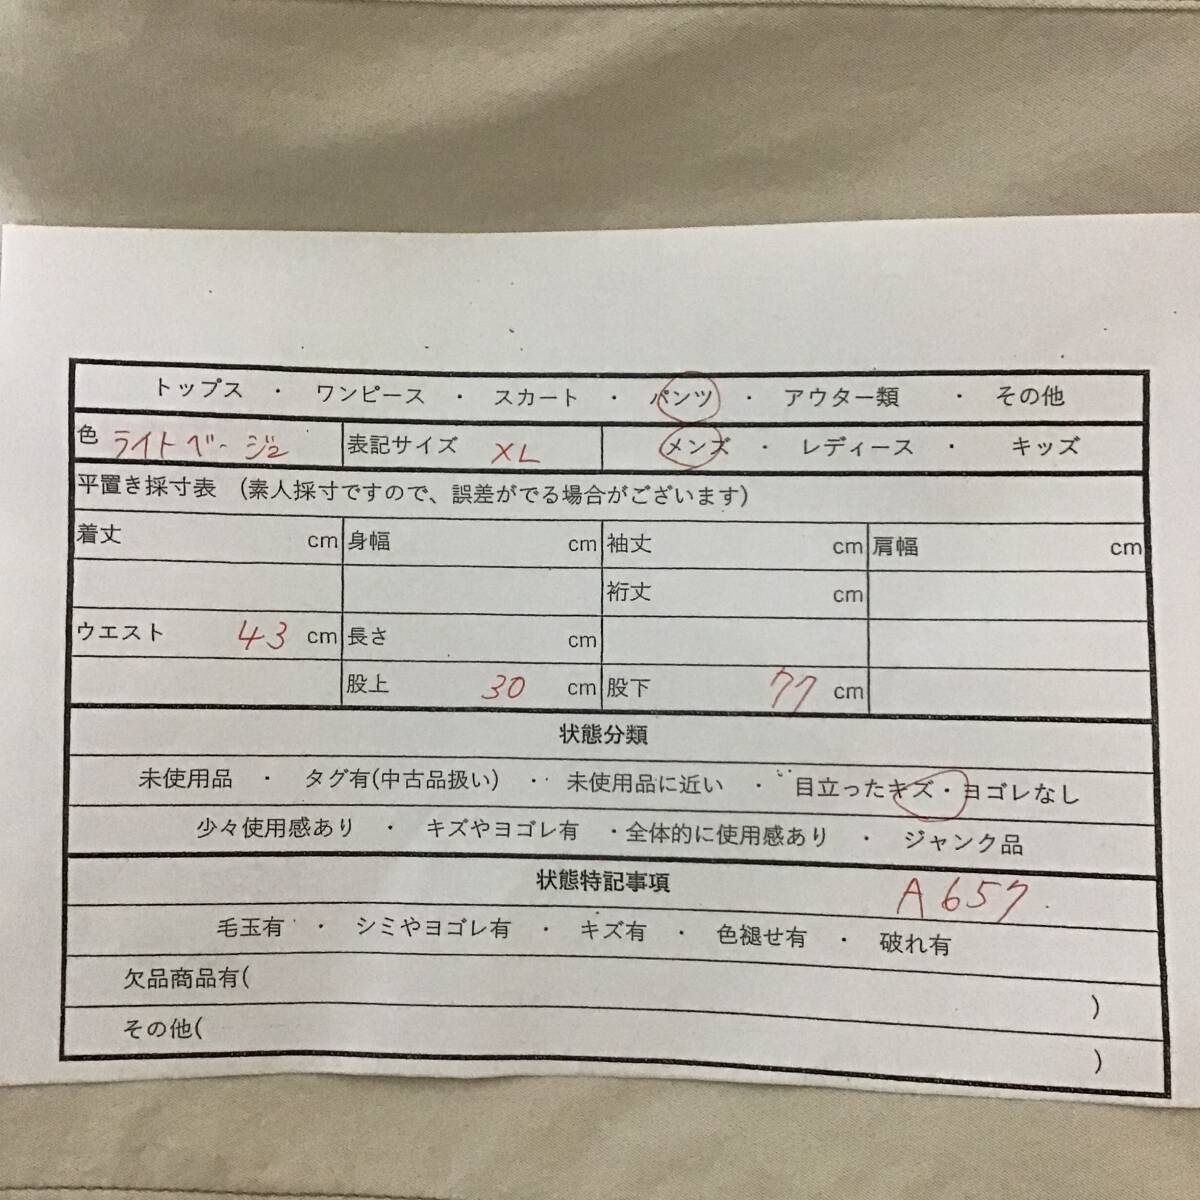 トップス ・ ワンピース ・ スカート ・ パンツ ・ アウター類 ・ その他
色 ライトベージュ 表記サイズ XL メンズ ・ レディース ・ キッズ
平置き採寸表 (素人採寸ですので、誤差がでる場合がございます)
着丈 cm 身幅 cm 袖丈 cm 肩幅 cm
裄丈 cm
ウエスト 43 cm 長さ cm
股上 30 cm 股下 77 cm
状態分類
未使用品 ・ タグ有(中古品扱い) ・ 未使用品に近い ・ 目立ったキズ・ヨゴレなし
少々使用感あり ・ キズやヨゴレ有 ・全体的に使用感あり ・ ジャンク品
状態特記事項 A657
毛玉有 ・ シミやヨゴレ有 ・ キズ有 ・ 色褪せ有 ・ 破れ有
欠品商品有( )
その他( )